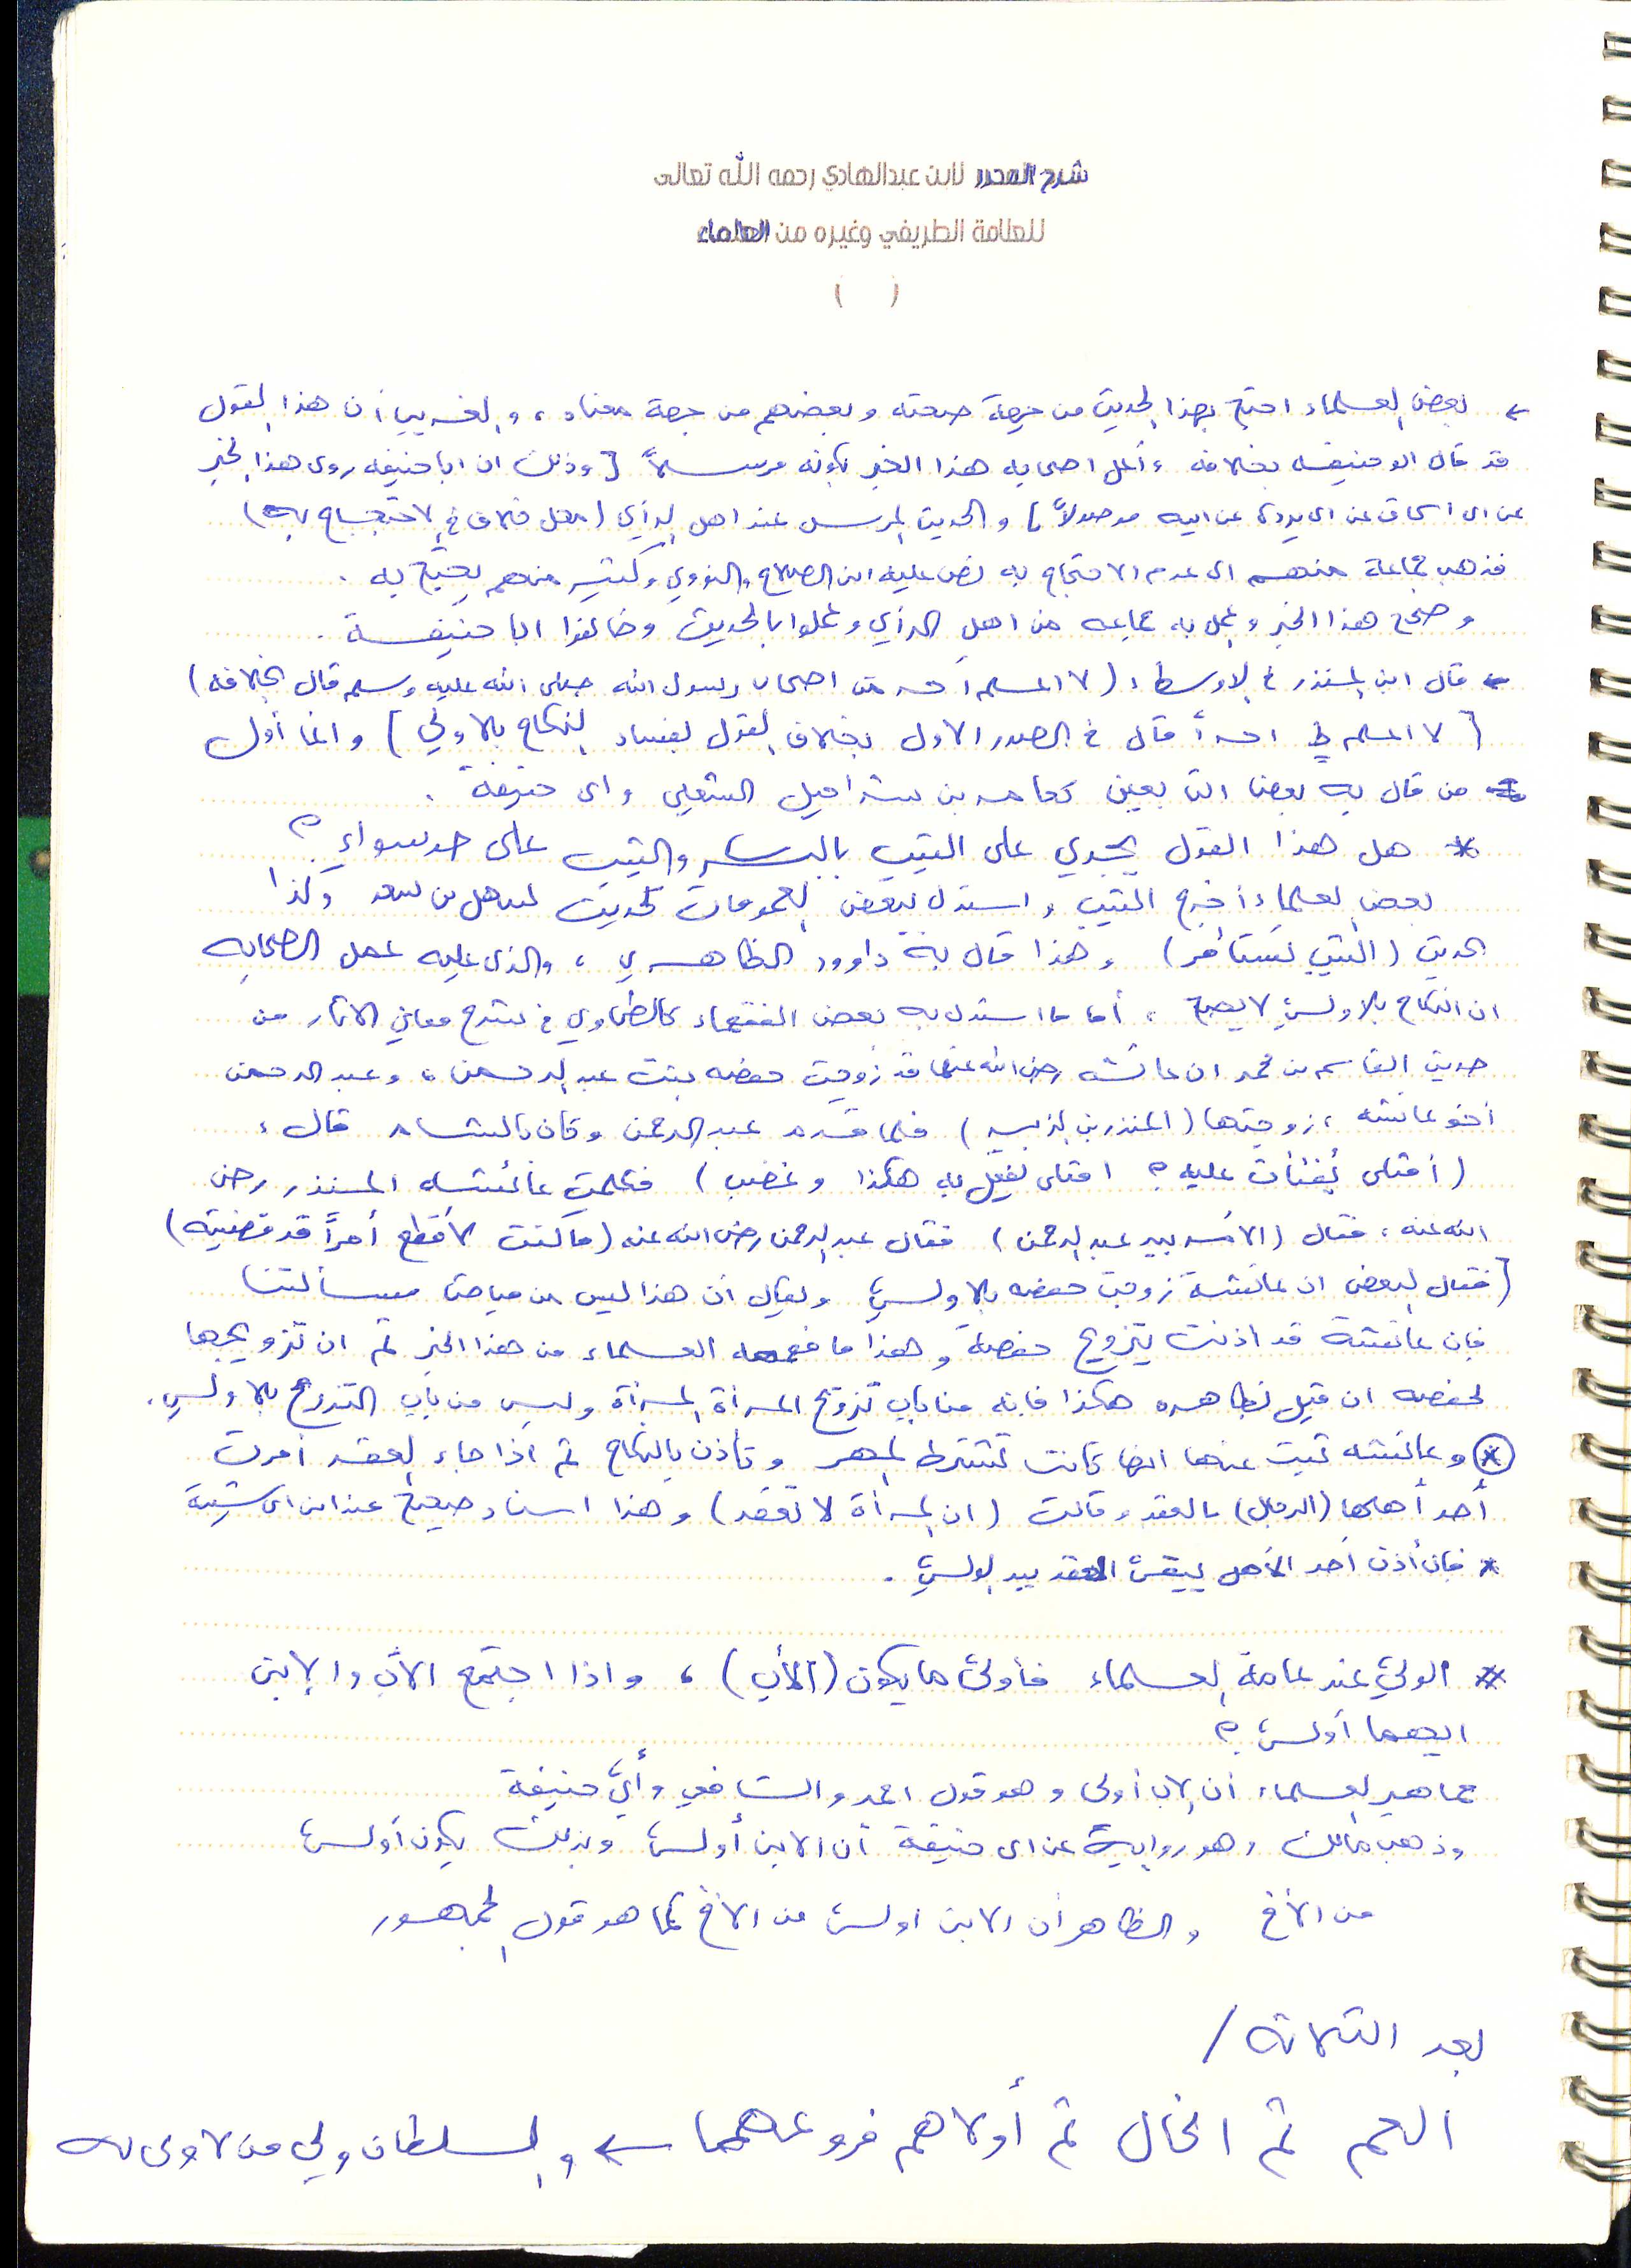 شرح المحرر لابن عبدالهادي رحمه الله تعالى
للعلامة الطريفي وغيره من العلماء
( )
← بعض العلماء احتج بهذا الحديث من جهة صحته وبعضهم من جهة معناه ، والغريب أن هذا القول
قد قال ابو حنيفه بخلافه وأعل اصحابه هذا الخبر بكونه مرسلاً [ وذلك ان ابا حنيفه روى هذا الخبر
عن ابي اسحاق عن ابي بردة عن ابيه موصولاً ] والحديث المرسل عند اهل الرأي ( محل خلاف في الاحتجاج به )
فذهب جماعة منهم الى عدم الاحتجاج به نص عليه ابن الصلاح والنووي وكثير منهم يحتج به .
وصحح هذا الخبر وعمل به جماعه من اهل الرأي وعملوا بالحديث وخالفوا ابا حنيفة .
← قال ابن المنذر في الاوسط : ( لا اعلم أحد من اصحاب رسول الله صلى الله عليه وسلم قال بخلافه )
[ لا اعلم احداً قال في الصدر الاول بخلاف القول بفساد النكاح بلا ولي ] وانما أول
من قال به بعض التابعين كعامر بن شراحيل الشعبي وابي حنيفة .
* هل هذا القول يجري على الثيب بالبكر والثيب على حد سواء ؟
بعض العلماء أخرج الثيب واستدل ببعض العمومات كحديث سهل بن سعد وكذا
الحديث ( الثيب تستأمر ) وهذا قال به داوود الظاهري ، والذي عليه عمل الصحابه
ان النكاح بلا ولي لا يصح ، أما ما استدل به بعض الفقهاء كالطحاوي في شرح معاني الاثار من
حديث القاسم بن محمد ان عائشه رضي الله عنها قد زوجت حفصه بنت عبد الرحمن ، وعبد الرحمن
أخو عائشه ، زوجتها ( المنذر بن الزبير ) فلما قدم عبد الرحمن وكان بالشام قال :
( أمثلي يُفتأت عليه ؟ امثلي يفعل به هكذا وغضب ) فكلمت عائشه المنذر رضي
الله عنه ، فقال ( الامر بيد عبد الرحمن ) فقال عبد الرحمن رضي الله عنه ( ما كنت لأقطع أمراً قد قضيته )
[ فقال البعض ان عائشة زوجت حفصه بلا ولي ويقال ان هذا ليس من مباحث مسألتنا
فإن عائشة قد اذنت بتزويج حفصة وهذا ما فهمه العلماء من هذا الخبر ثم ان تزويجها
لحفصه ان قيل بظاهره هكذا فانه من باب تزويج المرأة المرأة وليس من باب التزوج بلا ولي .
* وعائشه ثبت عنها انها كانت تشترط المهر وتأذن بالنكاح ثم اذا جاء العقد أمرت
أحد أهلها (الرجال) بالعقد وقالت ( ان المرأة لا تعقد ) وهذا اسناد صحيح عند ابن ابي شيبة
* فإن أذن أحد الأهل يبقى العقد بيد الولي .
* الولي عند عامة العلماء فأولى ما يكون (الأب) ، واذا اجتمع الأب والابن
ايهما أولى ؟
جماهير العلماء أن الاب أولى وهو قول احمد والشافعي وأبي حنيفة
وذهب مالك وهو رواية عن ابي حنيفة أن الابن أولى وبذلك يكون أولى
من الأخ والظاهر أن الابن اولى من الأخ كما هو قول الجمهور
بعد الثلاثه /
العم ثم الخال ثم أولاهم فروعهما ← والسلطان ولي من لا ولي له